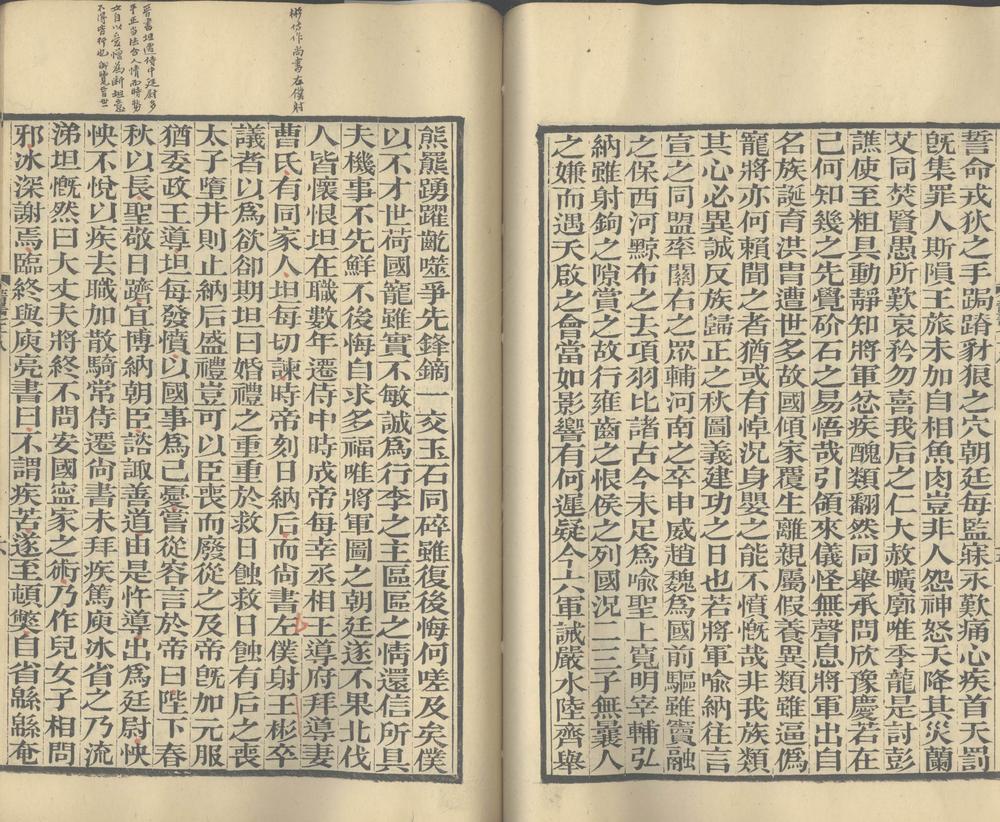 誓命戎狄之手跼蹐豺狼之穴朝廷每臨寐永歎痛心疾首天罰
旣集罪人斯隕王旅未加自相魚肉豈非人怨神怒天降其災蘭
艾同焚賢愚所歎哀矜勿喜我后之仁大赦曠廓唯季龍是討彭
譙使至粗具動靜知將軍忿疾醜類翻然同舉承問欣豫慶若在
己何知幾之先覺砎石之易悟哉引領來儀怪無聲息將軍出自
名族誕育洪胄遭世多故國傾家覆生離親屬假養異類雖逼僞
寵將亦何賴聞之者猶或有悼況身嬰之能不憤慨哉非我族類
其心必異誠反族歸正之秋圖義建功之日也若將軍喻納往言
宣之同盟率關右之眾輔河南之卒申威趙魏爲國前驅雖竇融
之保西河黥布之去項羽比諸古今未足爲喻聖上寬明宰輔弘
納雖射鉤之隙賞之故行雍齒之恨侯之列國況二三子無曩人
之嫌而遇天啟之會當如影響有何遲疑今六軍誡嚴水陸齊舉
彬傳作尚書右僕射
晉書坦遷侍中廷尉多
平正當法合人情而時勢
女自以愛憎爲斷坦意
不得皆行也
熊羆踴躍齕噬爭先鋒鏑一交玉石同碎雖復後悔何嗟及矣僕
以不才世荷國寵雖實不敏誠爲行李之主區區之情還信所具
夫機事不先鮮不後悔自求多福唯將軍圖之朝廷遂不果北伐
人皆懷恨坦在職數年遷侍中時成帝每幸丞相王導府拜導妻
曹氏有同家人坦每切諫時帝刻日納后而尙書左僕射王彬卒
議者以爲欲卻期坦曰婚禮之重重於救日蝕救日蝕有后之喪
太子墮井則止納后盛禮豈可以臣喪而廢從之及帝旣加元服
猶委政王導坦每發憤以國事爲己憂嘗從容言於帝曰陛下春
秋以長聖敬日躋宜博納朝臣諮諏善道由是忤導出爲廷尉怏
怏不悅以疾去職加散騎常侍遷尙書未拜疾篤庾冰省之乃流
涕坦慨然曰大丈夫將終不問安國寍家之術乃作兒女子相問
邪冰深謝焉臨終與庾亮書曰不謂疾苦遂至頓獘自省緜緜奄